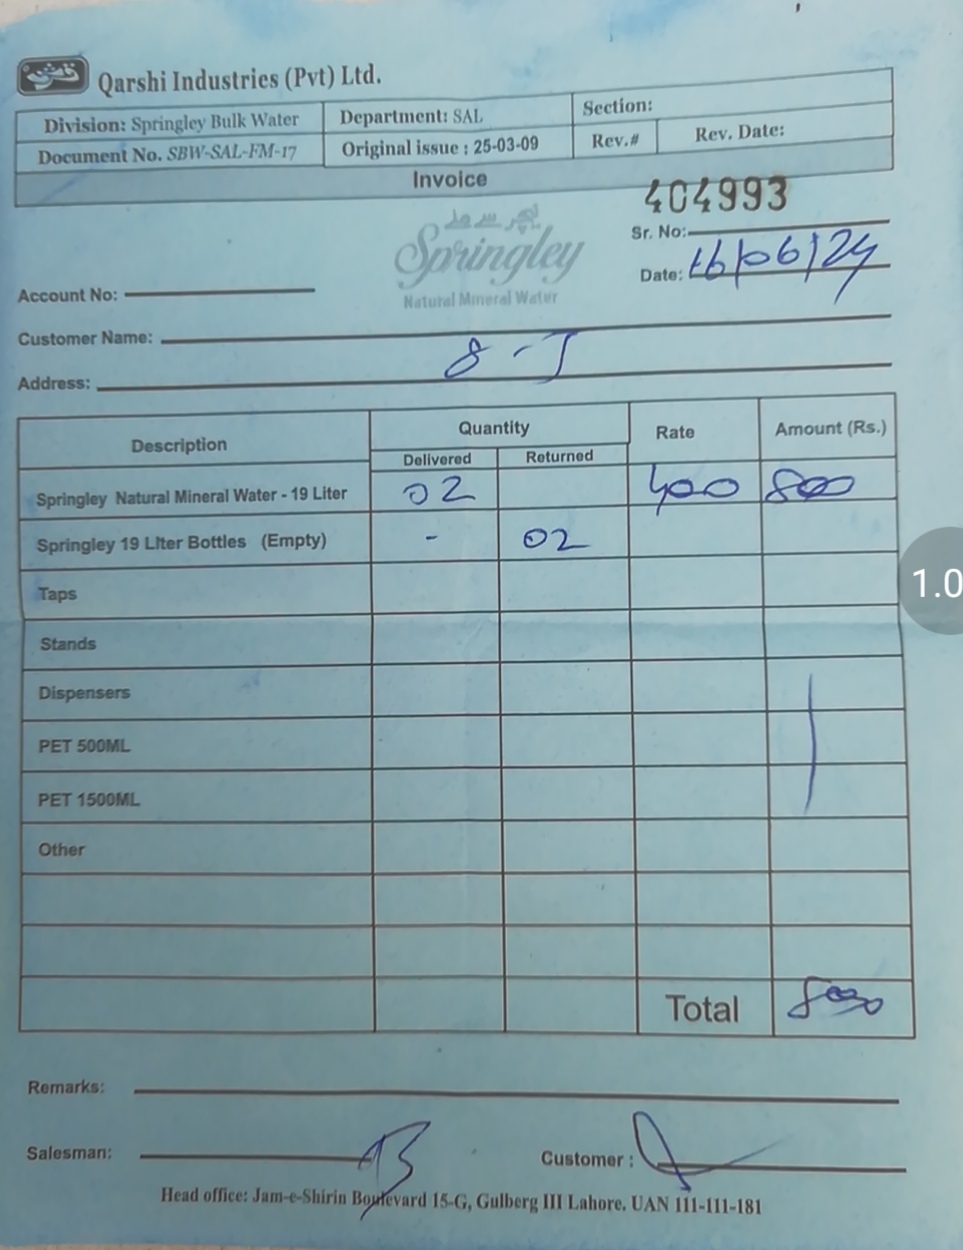 قرشی
Qarshi Industries (Pvt) Ltd.
Division: Springley Bulk Water Department: SAL Section:
Document No. SBW-SAL-FM-17 Original issue : 25-03-09 Rev.# Rev. Date:
Invoice
404993
Springley
Sr. No:
Natural Mineral Water
Date: 16/06/24
Account No:
Customer Name:
Address: 8-J
Description Quantity Rate Amount (Rs.)
Delivered Returned
Springley Natural Mineral Water - 19 Liter 02 400 800
Springley 19 Liter Bottles (Empty) - 02
Taps
Stands
Dispensers
PET 500ML
PET 1500ML
Other
Total 800
Remarks:
Salesman:
Customer :
Head office: Jam-e-Shirin Boulevard 15-G, Gulberg III Lahore. UAN 111-111-181
1.0